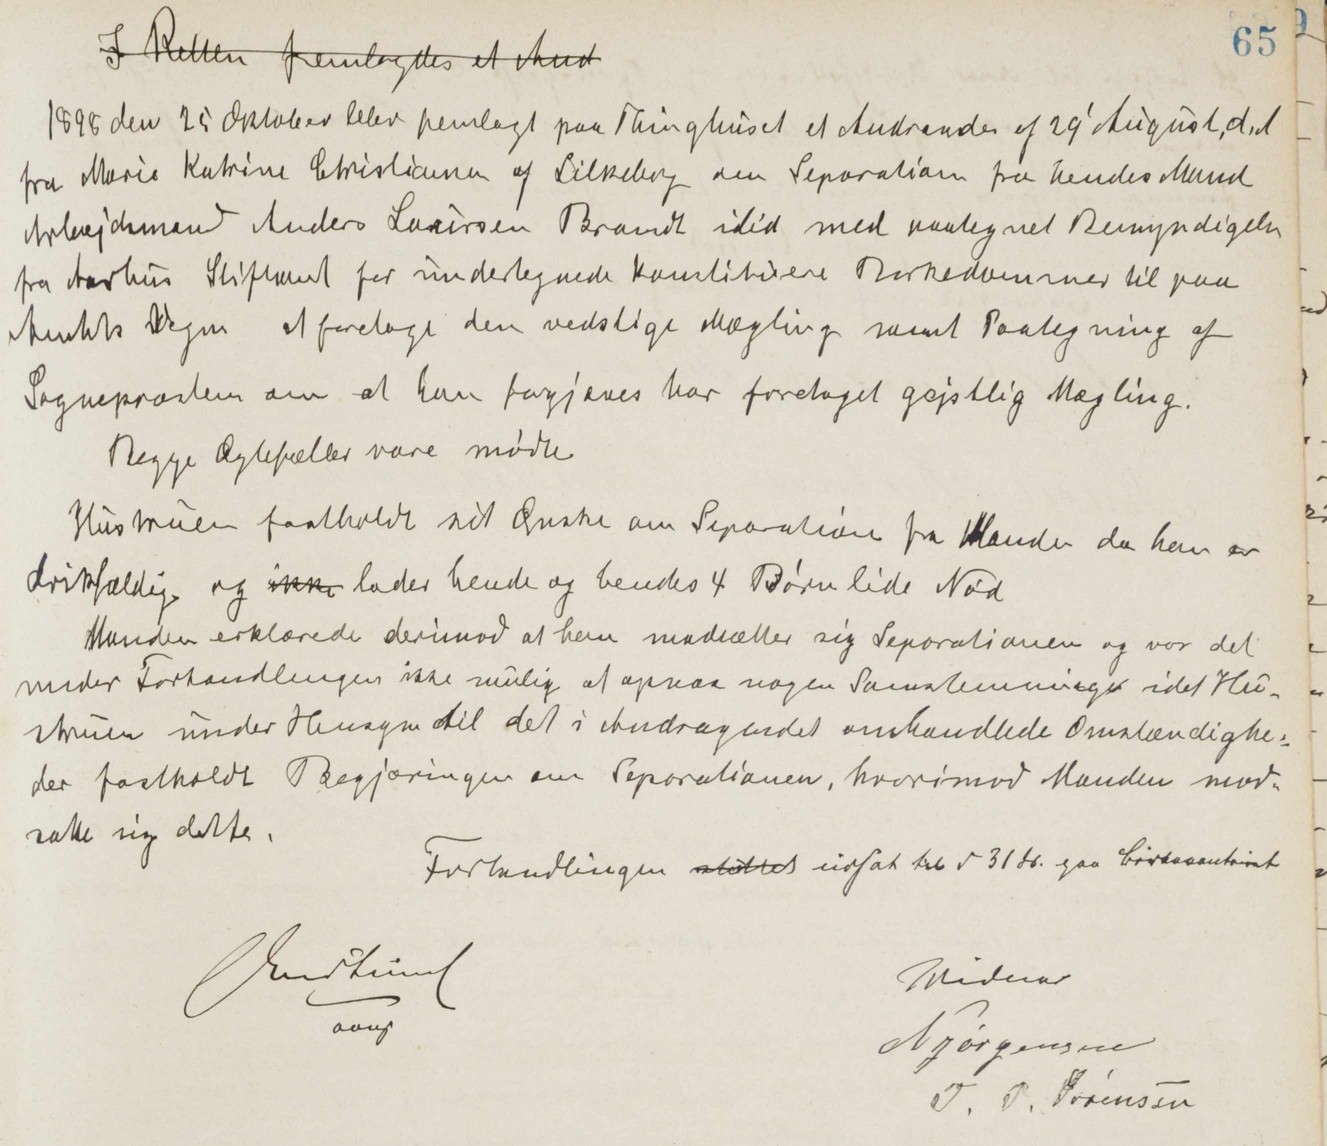 65
I Retten fremlagdes et And
1898 den 25 Oktober blev fremlagt paa Thinghuset et Andragende af 29' August, d.A
fra Marie Katrine Christiansen af Silkeborg om Separation fra hendes Mand
Arbejdsmand Anders Laursen Brandt ibid med paategnet Bemyndigelse
fra Aarhus Stiftamt for undertegnede konstituerede Birkedommer til paa
Amtets Vegne at foretage den verdslige Mægling samt Paategning af
Sognepræsten om at han forgjæves har foretaget gejstlig Mægling.
Begge Ægtefæller vare mødte
Hustruen fastholdt sit Ønske om Separation fra Manden da han er
drikfældig og ikke lader hende og hendes 4 Børn lide Nød
Manden erklærede derimod at han modsætter sig Separationen og var det
under Forhandlingen ikke mulig at opnaa nogen Samstemning idet Hu-
struen under Hensyn til det i Andragendet omhandlede Omstændighe-
der fastholdt Begjæringen om Separationen, hvorimod Manden mod-
satte sig dette.
Forhandlingen sluttet udsat til d 31 ds. paa
Vidner
N Jørgensen
T. P. Sørensen